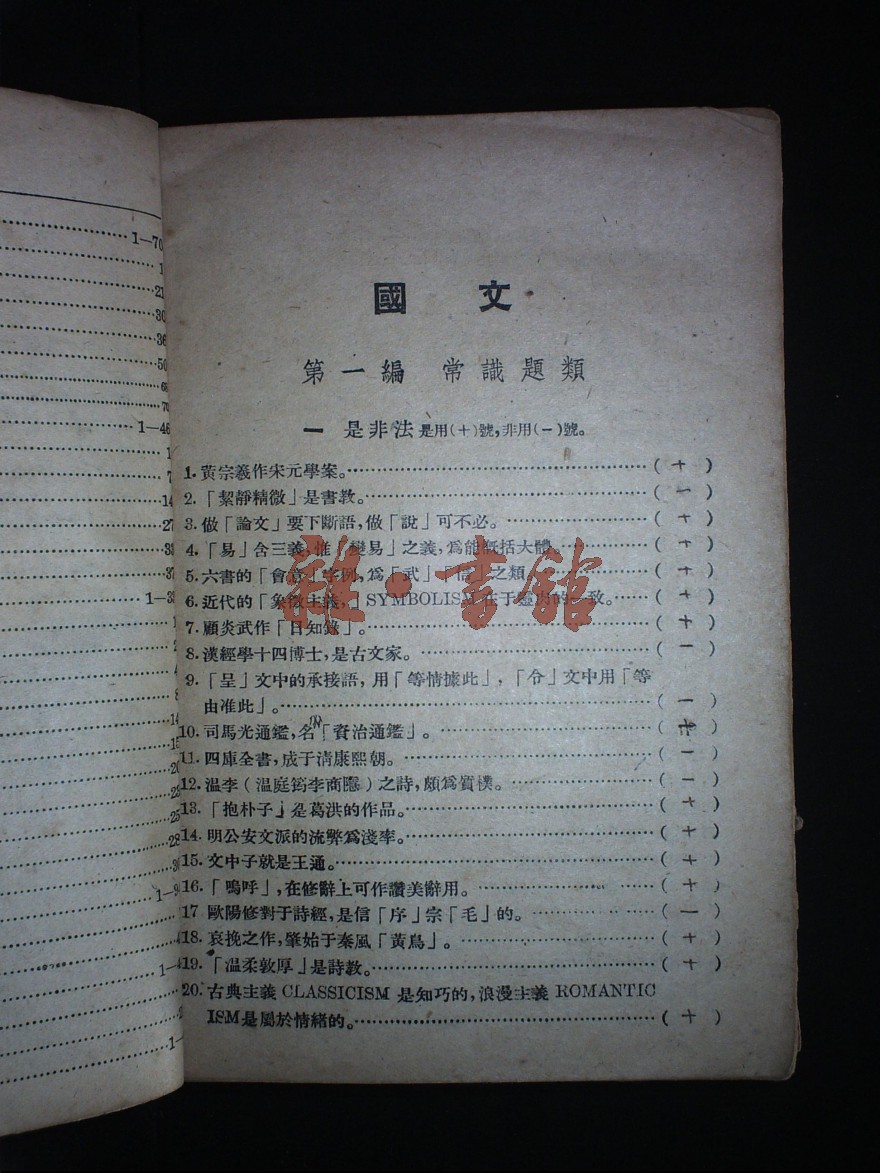 1—70
1
21
30
36
50
68
70
1—46
1
7
14
27
33
37
1—3
1
2
4
8
14
15
20
23
25
28
30
1—9
1—
2
1—
國 文
第一編 常識題類
一 是非法 是用(+)號,非用(一)號。
1. 黄宗羲作宋元學案。(+)
2. 「絜靜精微」是書教。(一)
3. 做「論文」要下斷語,做「說」可不必。(+)
4. 「易」含三義,惟「變易」之義,爲能概括大體。(+)
5. 六書的「會意」字例,爲「武」「信」之類。(+)
6. 近代的「象徵主義,」SYMBOLISM在于靈肉的一致。(+)
7. 顧炎武作「日知錄」。(+)
8. 漢經學十四博士,是古文家。(一)
9. 「呈」文中的承接語,用「等情據此」,「令」文中用「等
由准此」。(一)
10. 司馬光通鑑,名「資治通鑑」。(+)
11. 四庫全書,成于淸康熙朝。(一)
12. 温李(温庭筠李商隱)之詩,頗爲質樸。(一)
13. 「抱朴子」是葛洪的作品。(+)
14. 明公安文派的流弊爲淺率。(+)
15. 文中子就是王通。(+)
16. 「嗚呼」,在修辭上可作讚美辭用。(+)
17. 歐陽修對于詩經,是信「序」宗「毛」的。(一)
18. 哀挽之作,肇始于秦風「黃鳥」。(+)
19. 「温柔敦厚」是詩教。(+)
20. 古典主義 CLASSICISM 是知巧的,浪漫主義 ROMANTIC
ISM是屬於情緒的。(+)
雜·書館